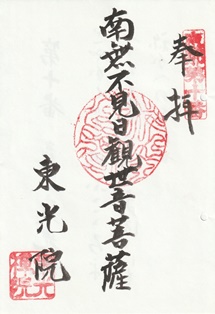 奉拝
南無不見日觀世音菩薩
東光院